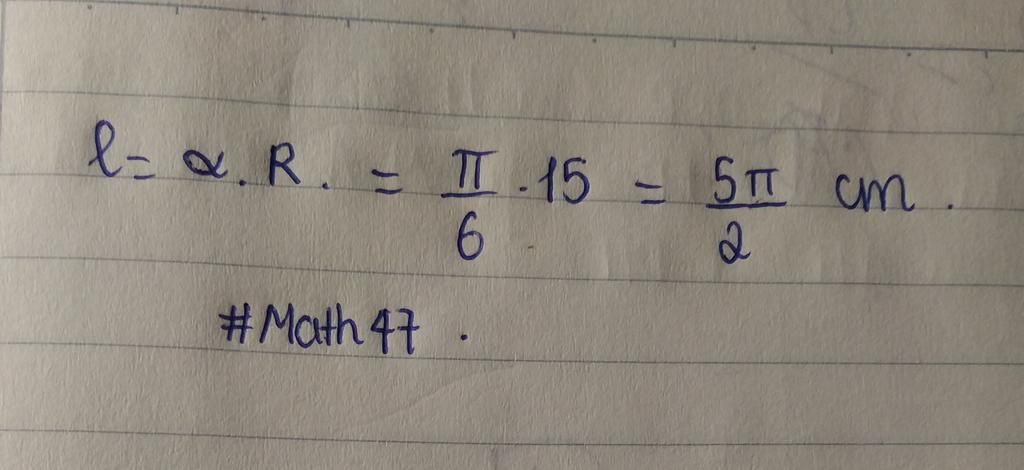 l = α . R . = π/6 . 15 = 5π/2 cm .
#Math 47 .